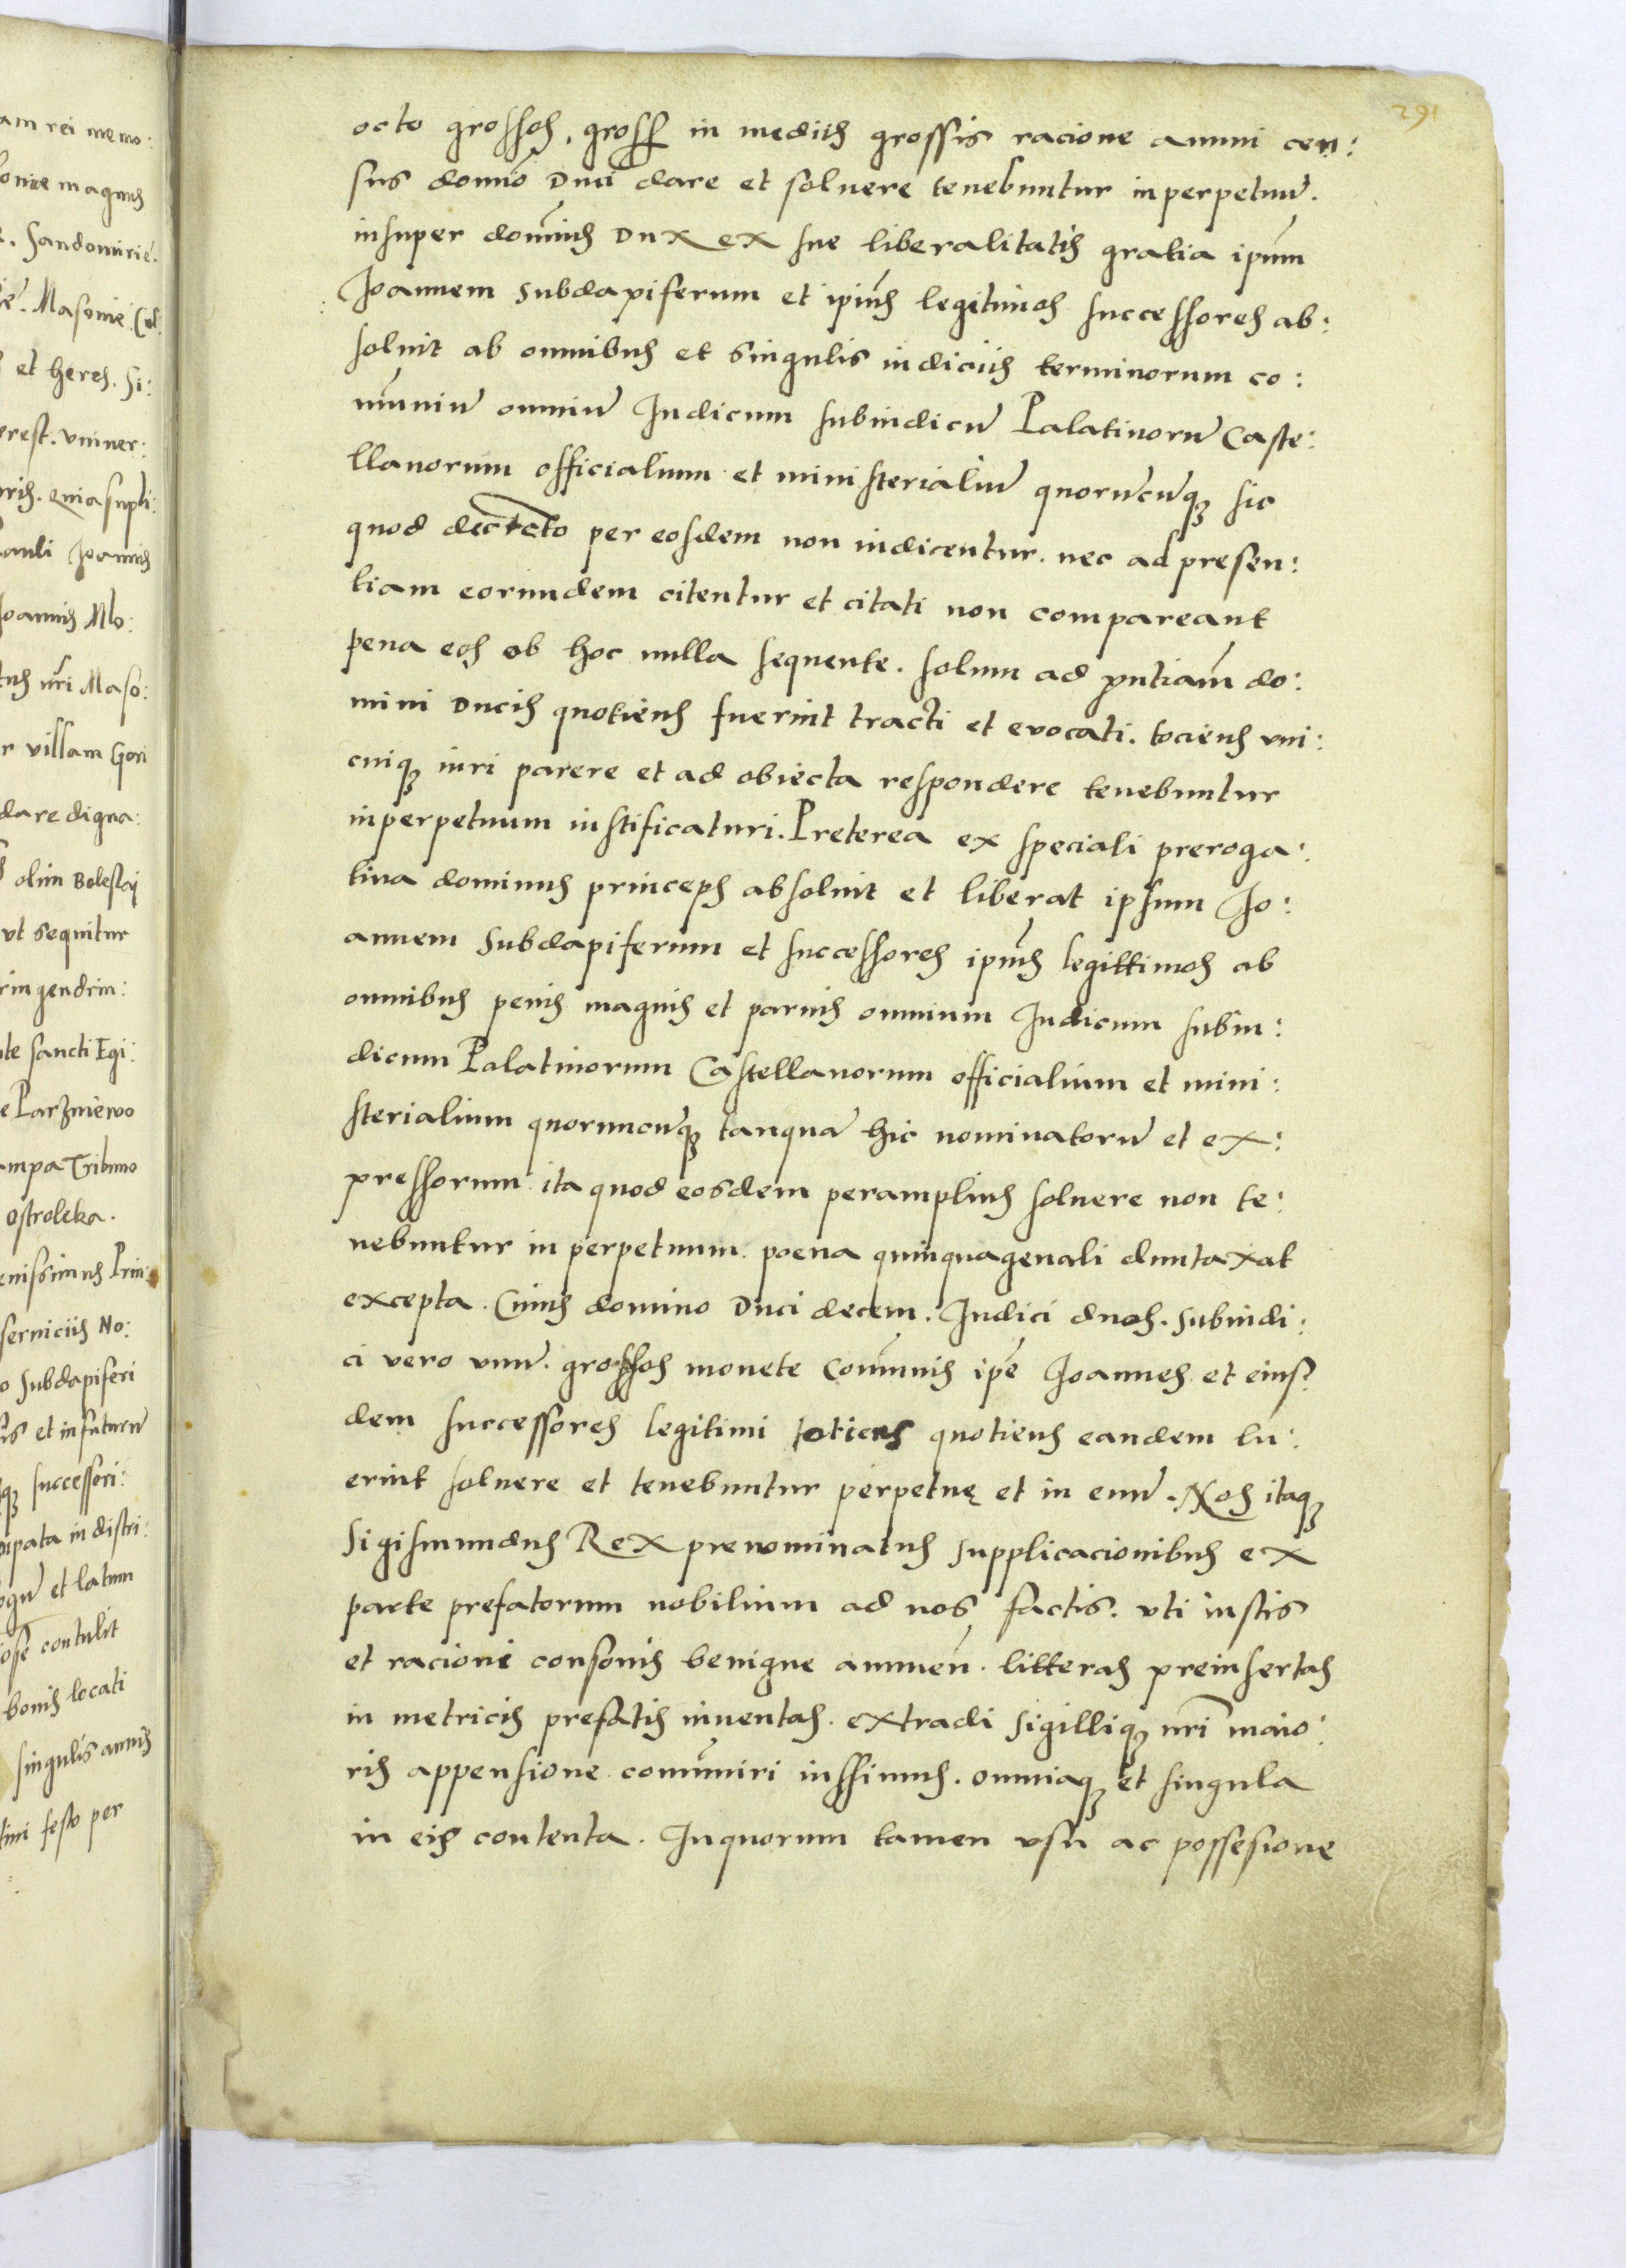 am rei memo:
onie magnus
. Sandomirie.
. Masovie. Cul
et heres. Si:
erest. vniuer:
auli Ioannis
Ioannis Mlo:
tus nri Maso:
r villam Gori
dare digna:
olim Boleslaj
vt sequitur
ringendrin:
te sancti Egi:
e Parzniewo
ampa Tribuno
ostroleka.
enissimus Prin:
seruiciis No:
o Subdapiferi
is et in futurū
qȝ successori:
ogū et latum
iose contulit
bonis locati
singulis annis
timi festo per
291
octo grossos, gross in mediis grossis racione annui cen:
sus domīo Duci dare et soluere tenebuntur inperpetuū.
insuper domīnus Dux ex sue liberalitatis gratia ipūm
Ioannem Subdapiferum et ipīus legitimos successores ab:
soluit ab omnibus et singulis iudiciis terminorum co:
mūniū omniū Iudicum subiudicū Palatinorū Caste:
llanorum officialium et ministerialiū quorūcūqȝ sic
quod decētēto per eosdem non iudicentur. nec ad presen:
tiam eorundem citentur et citati non compareant
pena eos ob hoc nulla sequente. solum ad pntiam̄ do:
mini Ducis quotiens fuerint tracti et euocati. tociens vni:
cuiqȝ iuri parere et ad obiecta respondere tenebuntur
inperpetuum iustificaturi. Preterea ex speciali preroga:
tiua dominus princeps absoluit et liberat ipsum Io:
annem Subdapiferum et successores ipīus legittimos ab
omnibus penis magnis et paruis omnium Iudicum subiu:
dicum Palatinorum Castellanorum officialium et mini:
sterialium quoruncūqȝ tanquā hic nominatorū et ex:
pressorum ita quod eosdem peramplius soluere non te:
nebuntur in perpetuum. poena quinquagenali duntaxat
excepta. Cuius domino Duci decem. Iudici duos. Subiudi:
ci vero vnū. grossos monete Com̄unis ipē Ioannes et eius:
dem successores legitimi totiens quotiens eandem lu:
erint soluere et tenebuntur perpetuę et in euū. Nos itaqȝ
Sigismundus Rex prenominatus supplicacionibus ex
parte prefatorum nobilium ad nos factis. vti iustis
et racioni consonis benigne annuen̄. litteras preinsertas
in metricis prefatis inuentas. extradi sigilliqȝ nr̄i maio:
ris appensione com̄uniri iussimus. omniaqȝ et singula
in eis contenta. Inquorum tamen vsu ac possesione